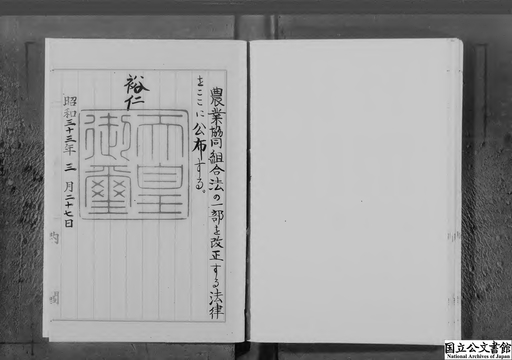 農業協同組合法の一部を改正する法律
をここに公布する。
裕仁
天皇
御璽
昭和三十三年三月二十七日
内閣
国立公文書館
National Archives of Japan